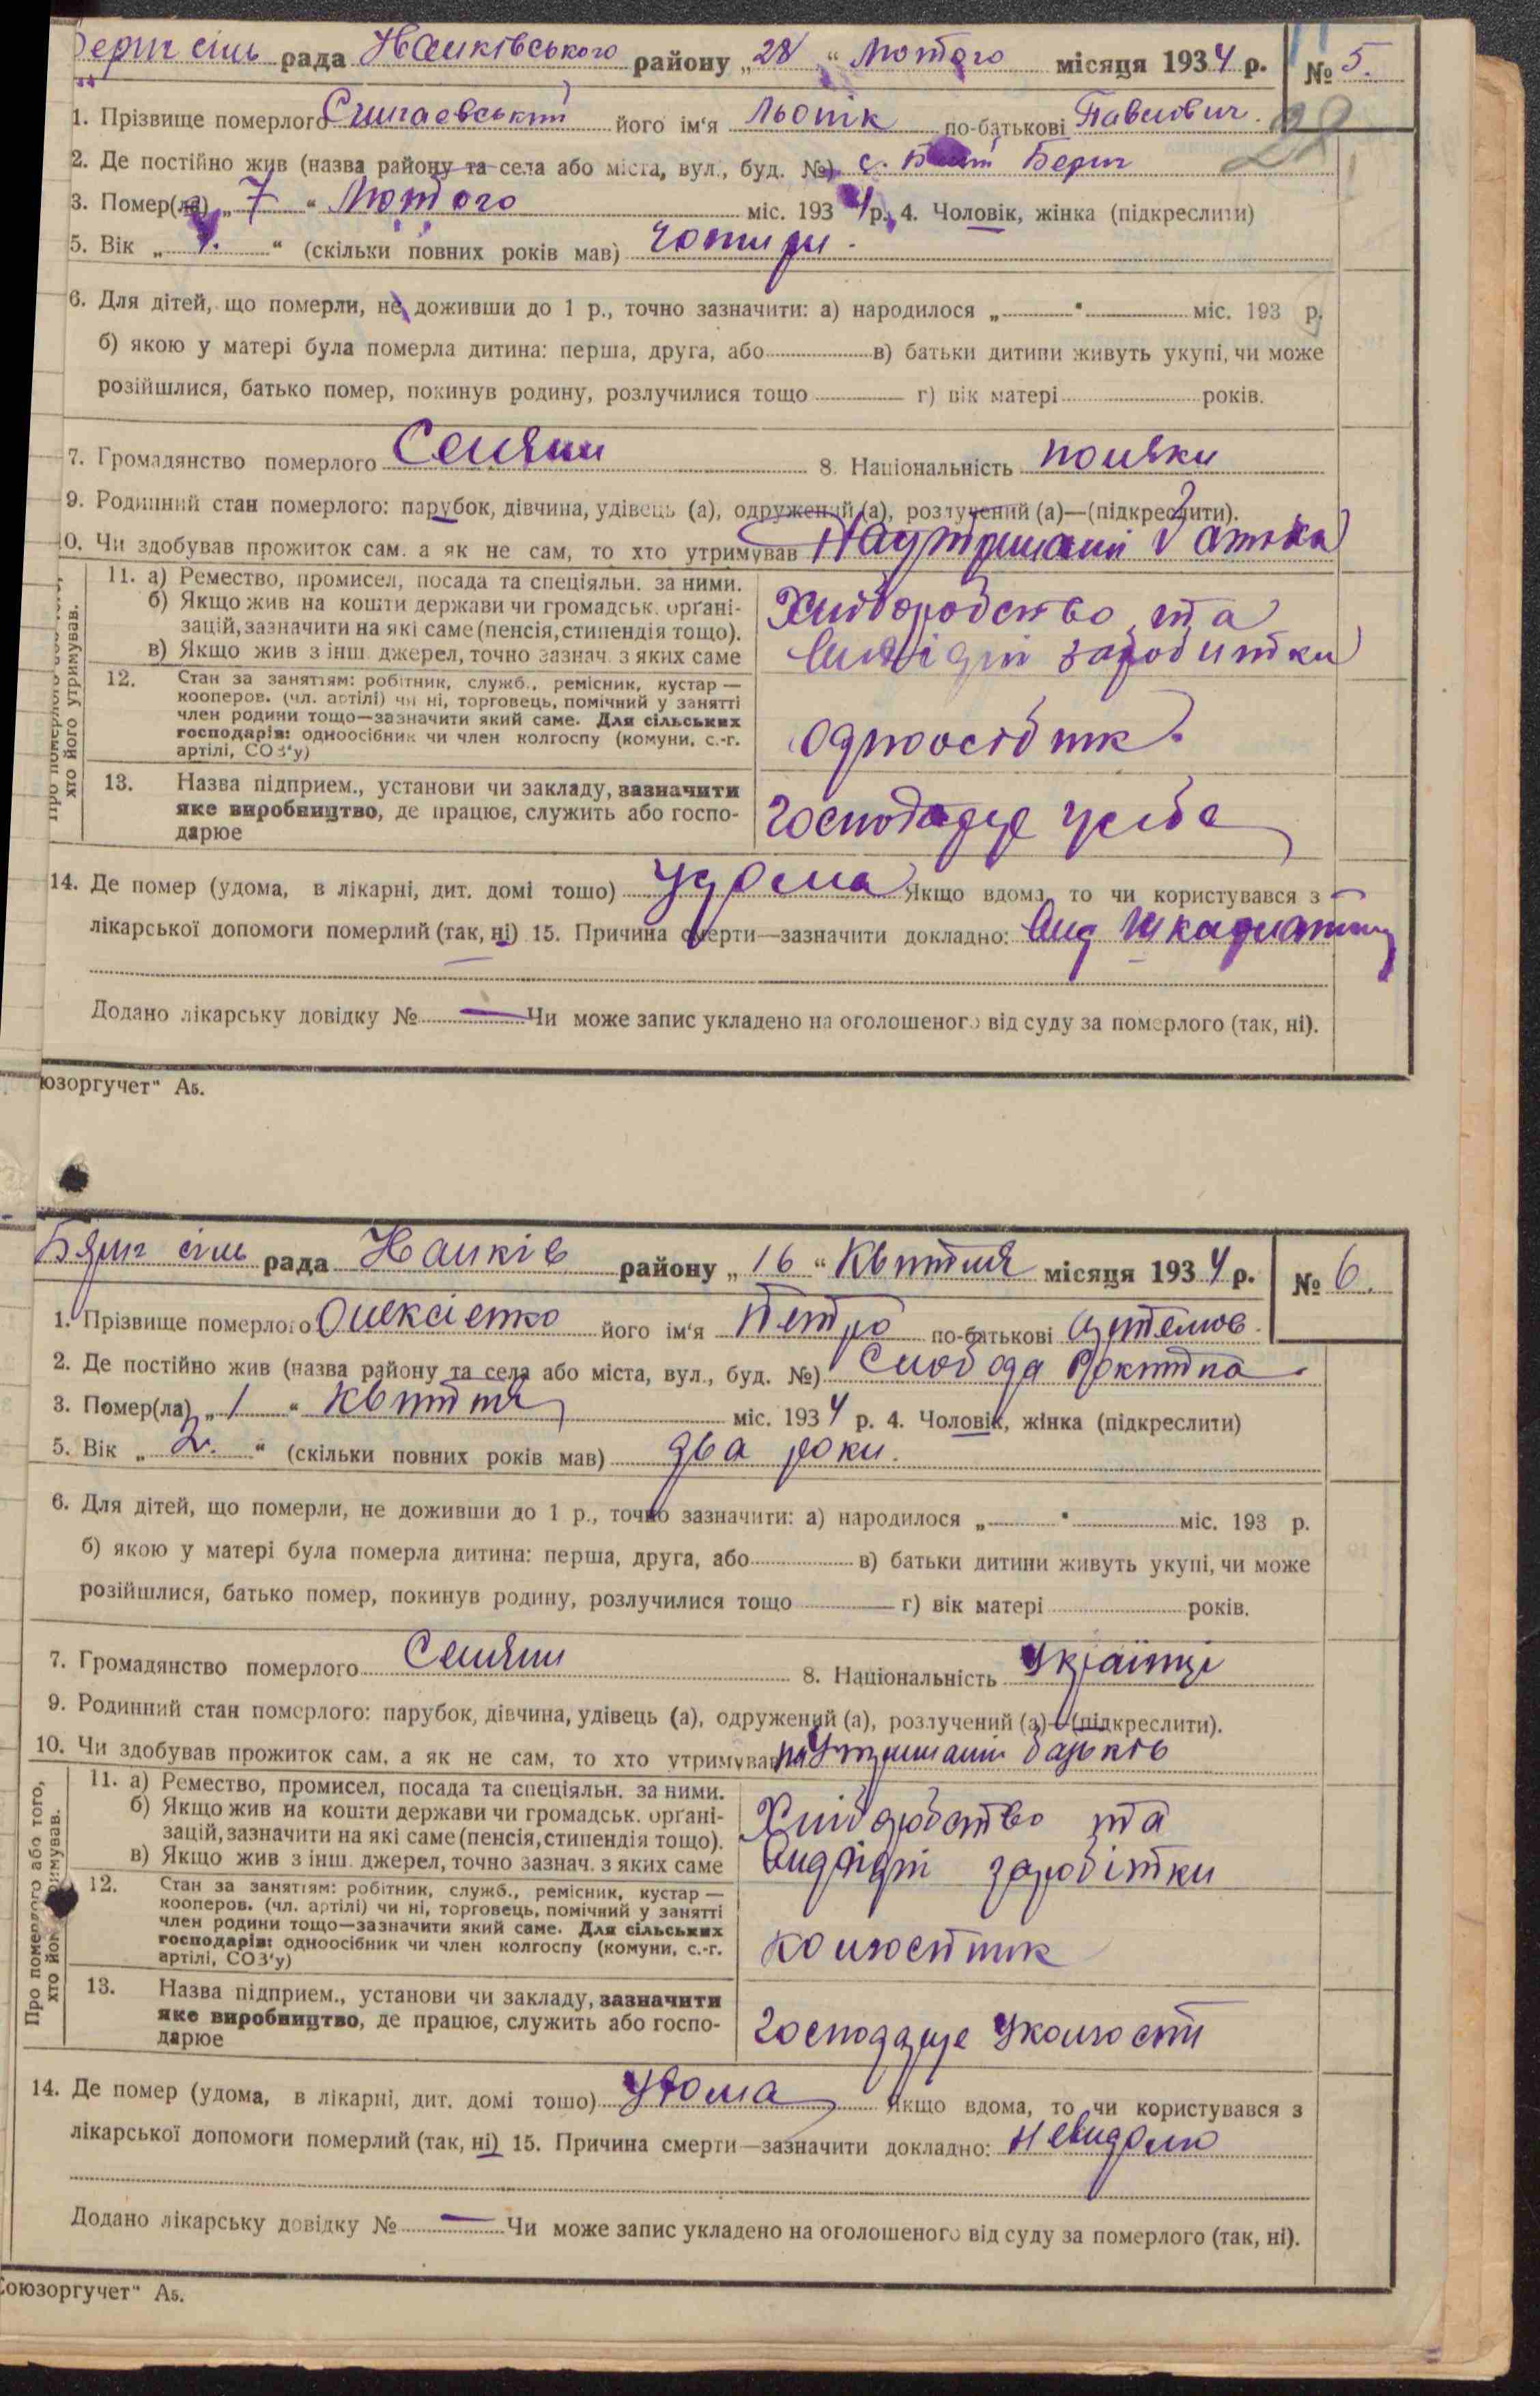 сіль рада району „28“ Лютого місяця 1934 р. № 5.
22
1. Прізвище померлого його ім'я Льонік по-батькові Павлович.
2. Де постійно жив (назва району та села або міста, вул., буд. №) с. Берич
3. Помер(ла) „7“ Лютого міс. 1934 р. 4. Чоловік, жінка (підкреслити)
5. Вік „4.“ (скільки повних років мав) чотири.
6. Для дітей, що померли, не доживши до 1 р., точно зазначити: а) народилося „ “ міс. 193 р.
б) якою у матері була померла дитина: перша, друга, або в) батьки дитини живуть укупі, чи може
розійшлися, батько помер, покинув родину, розлучилися тощо г) вік матері років.
7. Громадянство померлого Селяни 8. Національність поляки
9. Родинний стан померлого: парубок, дівчина, удівець (а), одружений (а), розлучений (а)—(підкреслити).
10. Чи здобував прожиток сам, а як не сам, то хто утримував На утриманні батька
Про померлого або того, хто його утримував.
11. а) Ремество, промисел, посада та спеціяльн. за ними.
б) Якщо жив на кошти держави чи громадськ. орґані-
зацій, зазначити на які саме (пенсія, стипендія тощо).
в) Якщо жив з інш. джерел, точно зазнач. з яких саме
Хліборобство та
заробитки
12. Стан за заняттям: робітник, служб., ремісник, кустар —
кооперов. (чл. артілі) чи ні, торговець, помічний у занятті
член родини тощо—зазначити який саме. Для сільських
господарів: одноосібник чи член колгоспу (комуни, с.-г.
артілі, СОЗ'у)
одноосібник.
13. Назва підприєм., установи чи закладу, зазначити
яке виробництво, де працює, служить або госпо-
дарює
господарує у себе
14. Де помер (удома, в лікарні, дит. домі тощо) удома Якщо вдома, то чи користувався з
лікарської допомоги померлий (так, ні) 15. Причина смерти—зазначити докладно: Від шкарлатини
Додано лікарську довідку № — Чи може запис укладено на оголошеного від суду за померлого (так, ні).
юзоргучет" А5.
сіль рада району „16“ Квітня місяця 1934 р. № 6.
1. Прізвище померлого Олексієнко його ім'я Петро по-батькові Артемов.
2. Де постійно жив (назва району та села або міста, вул., буд. №) Слобода Рокитна
3. Помер(ла) „1“ Квітня міс. 1934 р. 4. Чоловік, жінка (підкреслити)
5. Вік „2.“ (скільки повних років мав) два роки.
6. Для дітей, що померли, не доживши до 1 р., точно зазначити: а) народилося „ “ міс. 193 р.
б) якою у матері була померла дитина: перша, друга, або в) батьки дитини живуть укупі, чи може
розійшлися, батько помер, покинув родину, розлучилися тощо г) вік матері років.
7. Громадянство померлого Селяни 8. Національність Українці
9. Родинний стан померлого: парубок, дівчина, удівець (а), одружений (а), розлучений (а)—(підкреслити).
10. Чи здобував прожиток сам, а як не сам, то хто утримував на утриманні батьків
Про померлого або того, хто його утримував.
11. а) Ремество, промисел, посада та спеціяльн. за ними.
б) Якщо жив на кошти держави чи громадськ. орґані-
зацій, зазначити на які саме (пенсія, стипендія тощо).
в) Якщо жив з інш. джерел, точно зазнач. з яких саме
Хліборобство та
заробітки
12. Стан за заняттям: робітник, служб., ремісник, кустар —
кооперов. (чл. артілі) чи ні, торговець, помічний у занятті
член родини тощо—зазначити який саме. Для сільських
господарів: одноосібник чи член колгоспу (комуни, с.-г.
артілі, СОЗ'у)
колгоспник
13. Назва підприєм., установи чи закладу, зазначити
яке виробництво, де працює, служить або госпо-
дарює
господарує у колгоспі
14. Де помер (удома, в лікарні, дит. домі тощо) удома Якщо вдома, то чи користувався з
лікарської допомоги померлий (так, ні) 15. Причина смерти—зазначити докладно: Невидомо
Додано лікарську довідку № — Чи може запис укладено на оголошеного від суду за померлого (так, ні).
Союзоргучет" А5.